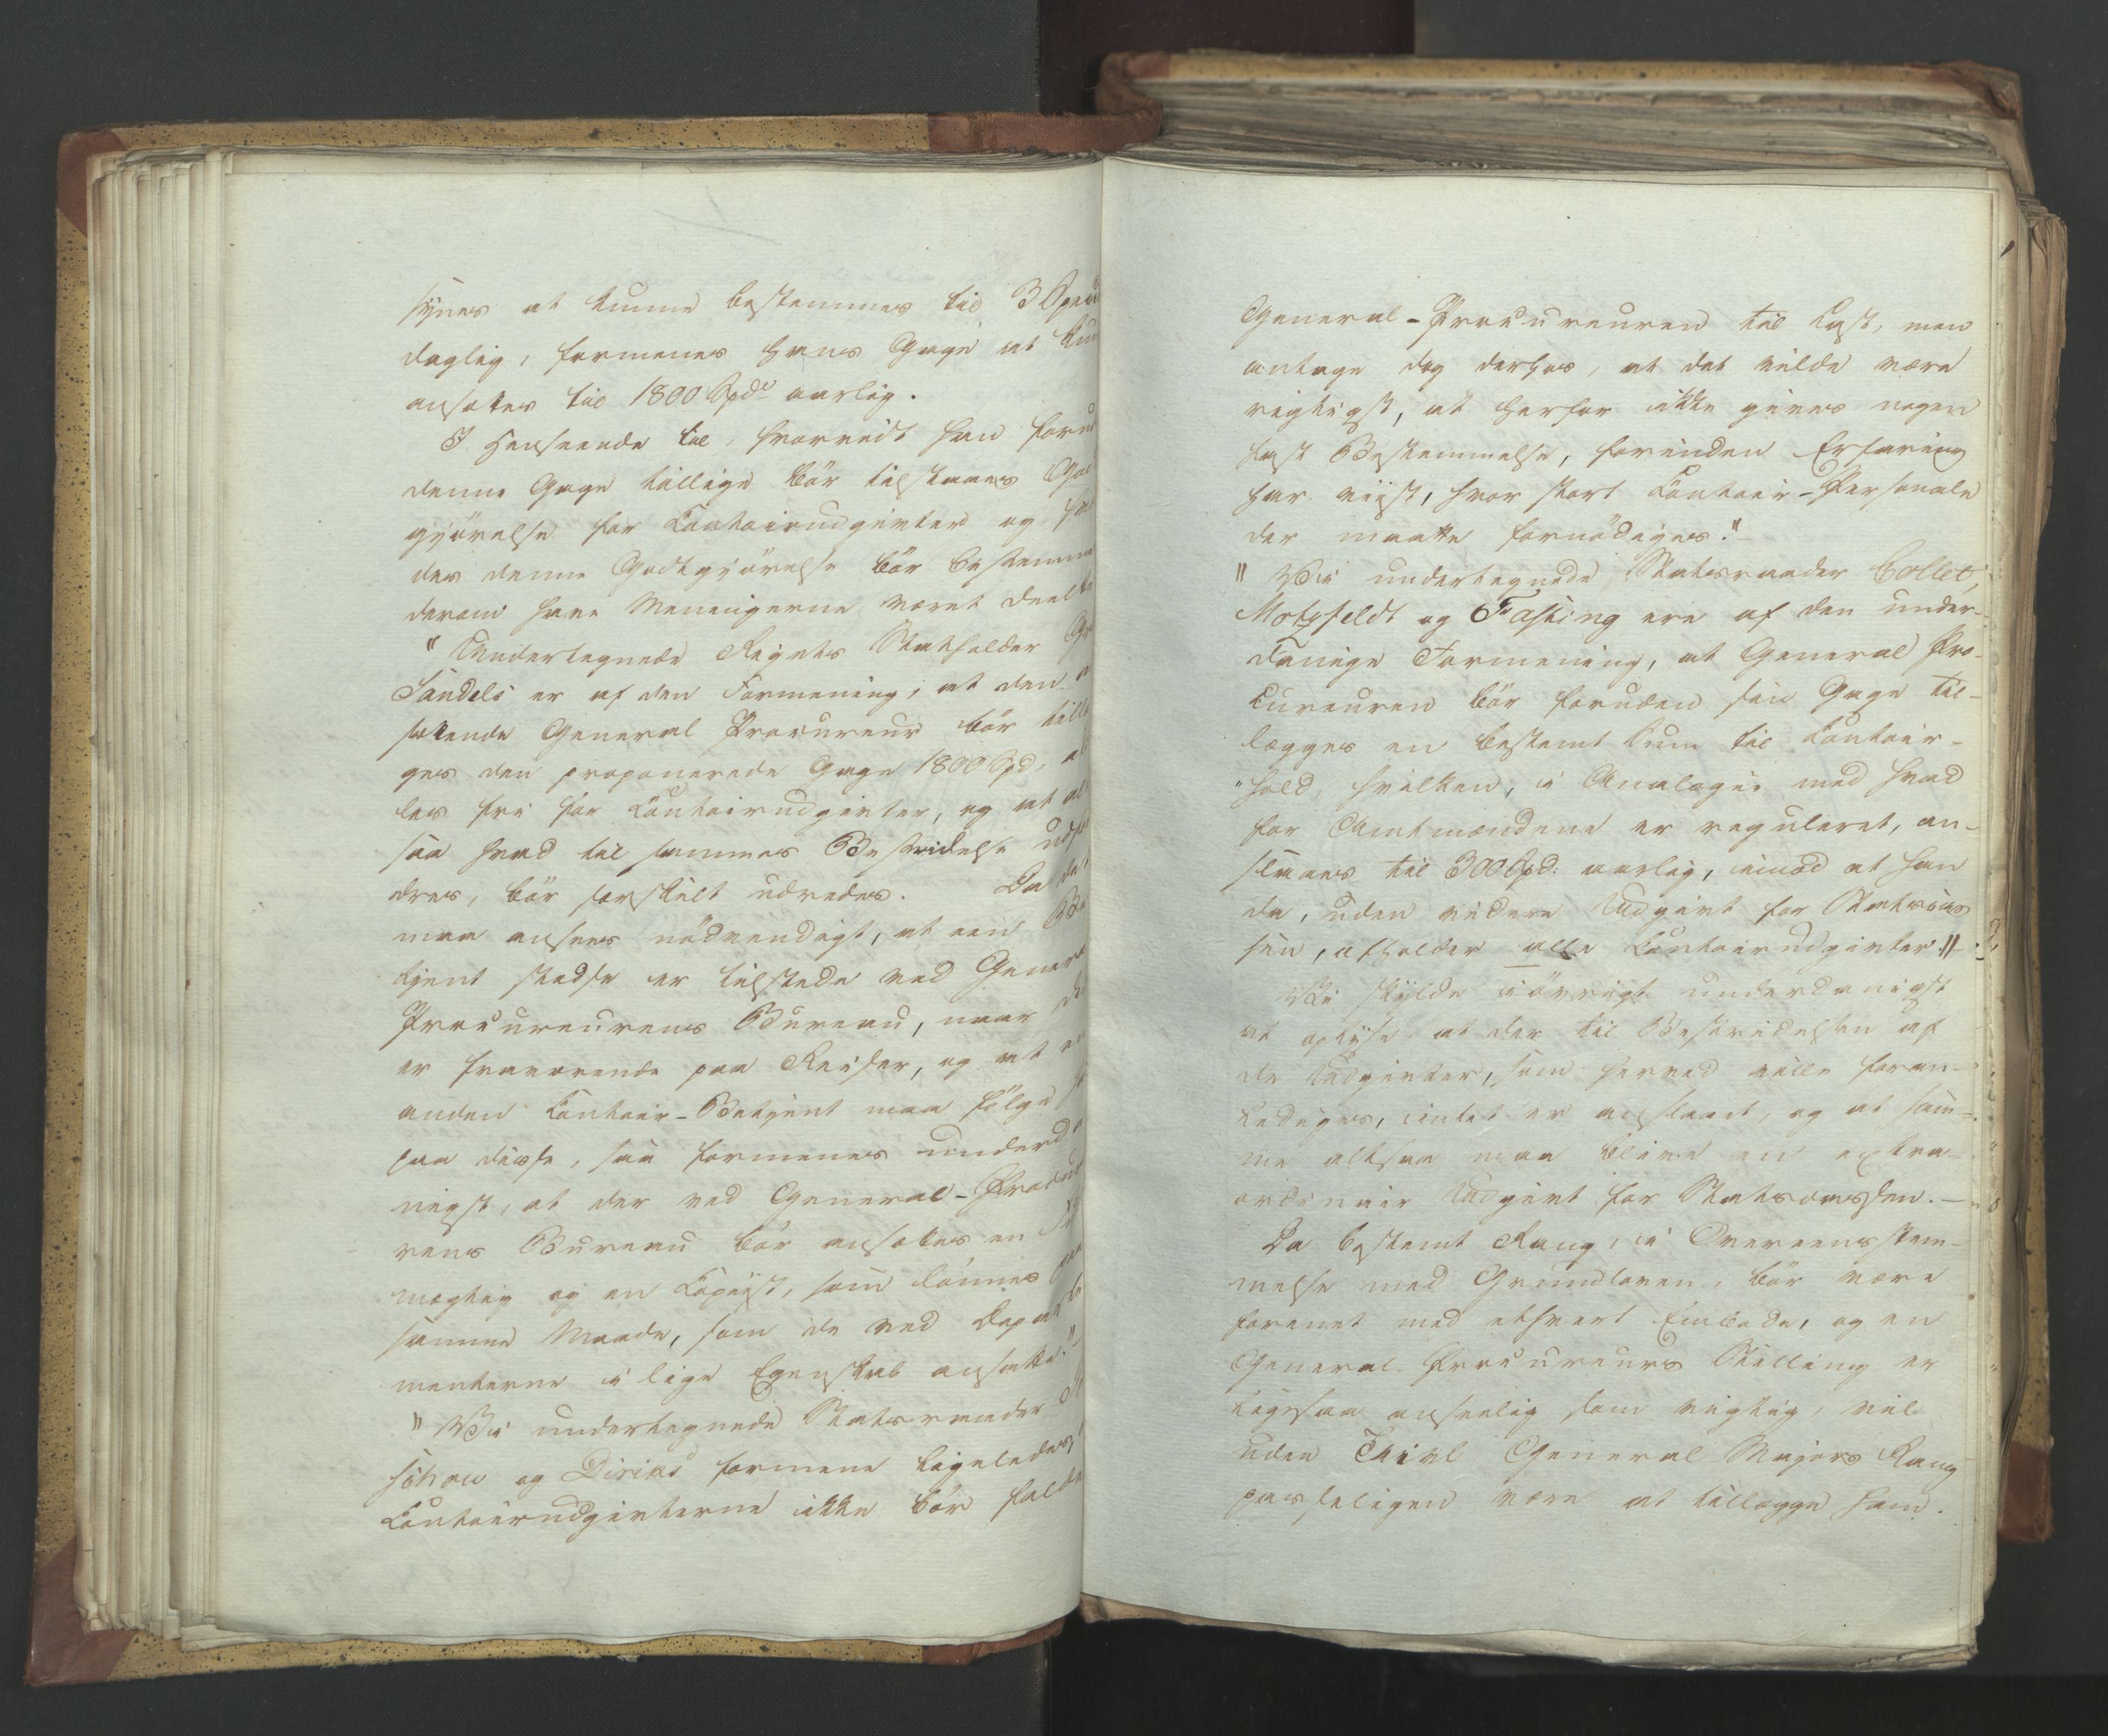 synes at kunne bestemmes til 3 Spesd
daglig, formenes hans Gage at kun
ansættes til 1800 Spdr aarlig.
I Henseende til, hvorvidt han foru
denne Gage tillige bör tilstaaes God
gjörelse for Contoirudgivter og hvor
des denne Godtgjörelse bör bestemme
derom have Meningerne været deelte
"Undertegnede Rigets Statholder Gre
Sandels er af den Formening, at den a
sættende General Procureur bör tille
ges den proponerede Gage 1800 Spd, al
les fri for Contoirudgivter, og at al
saa hvad til sammes Bestridelse udfor
dres, bör særskilt udredes. Da det
maa ansees nödvendigt, at een Be
tjent stedse er tilstede ved General
Procureurens Bureau, naar de
er fraværende paa Reiser, og at en
anden Contoir-Betjent maa fölge
paa disse, saa formenes underda
nigst, at der ved General-Procureu
rens Bureau bör ansættes en Fuld
mægtig og en Copiist, som lönnes paa
samme Maade, som de ved Departe
menterne i lige Egenskab ansatte."
"Vi undertegnede Statsraader
schow og Diriks formene ligeledes,
Contoirudgivterne ikke bör falde
General-Procureuren til Last, men
antage dog derhos, at det vilde være
rigtigst, at herfor ikke gives nogen
fast Bestemmelse, forinden Erfaring
har viist, hvor stort Contoir-Personale
der maatte fornödiges."
"Vi undertegnede Statsraader Collet,
Motzfeldt og Fasting ere af den under-
danige Formening, at General Pro-
cureuren bör foruden sin Gage til-
lægges en bestemt Sum til Contoir-
"hold, hvilken, i Analogie med hvad
for Amtmændene er reguleret, an-
slaaes til 300 Spd: aarlig, imod at han
da, uden videre Udgivt for Statscas
sen, afholder alle Contoirudgivter."
Vi skylde iövrigt underdanigst
at oplyse, at der til Bestridelsen af
de Udgivter, som herved ville foran-
lediges, intet er anslaaet, og at sam-
me altsaa maa blive en extra-
ordinair Udgivt for Statscassen.—
Da bestemt Rang, i Overeensstem-
melse med Grundloven, bör være
forenet med ethvert Embede, og en
General Procureurs Stilling er
ligesaa anseelig som vigtig, vil
uden Tvivl General Majors Rang
passeligen være at tillægge ham.